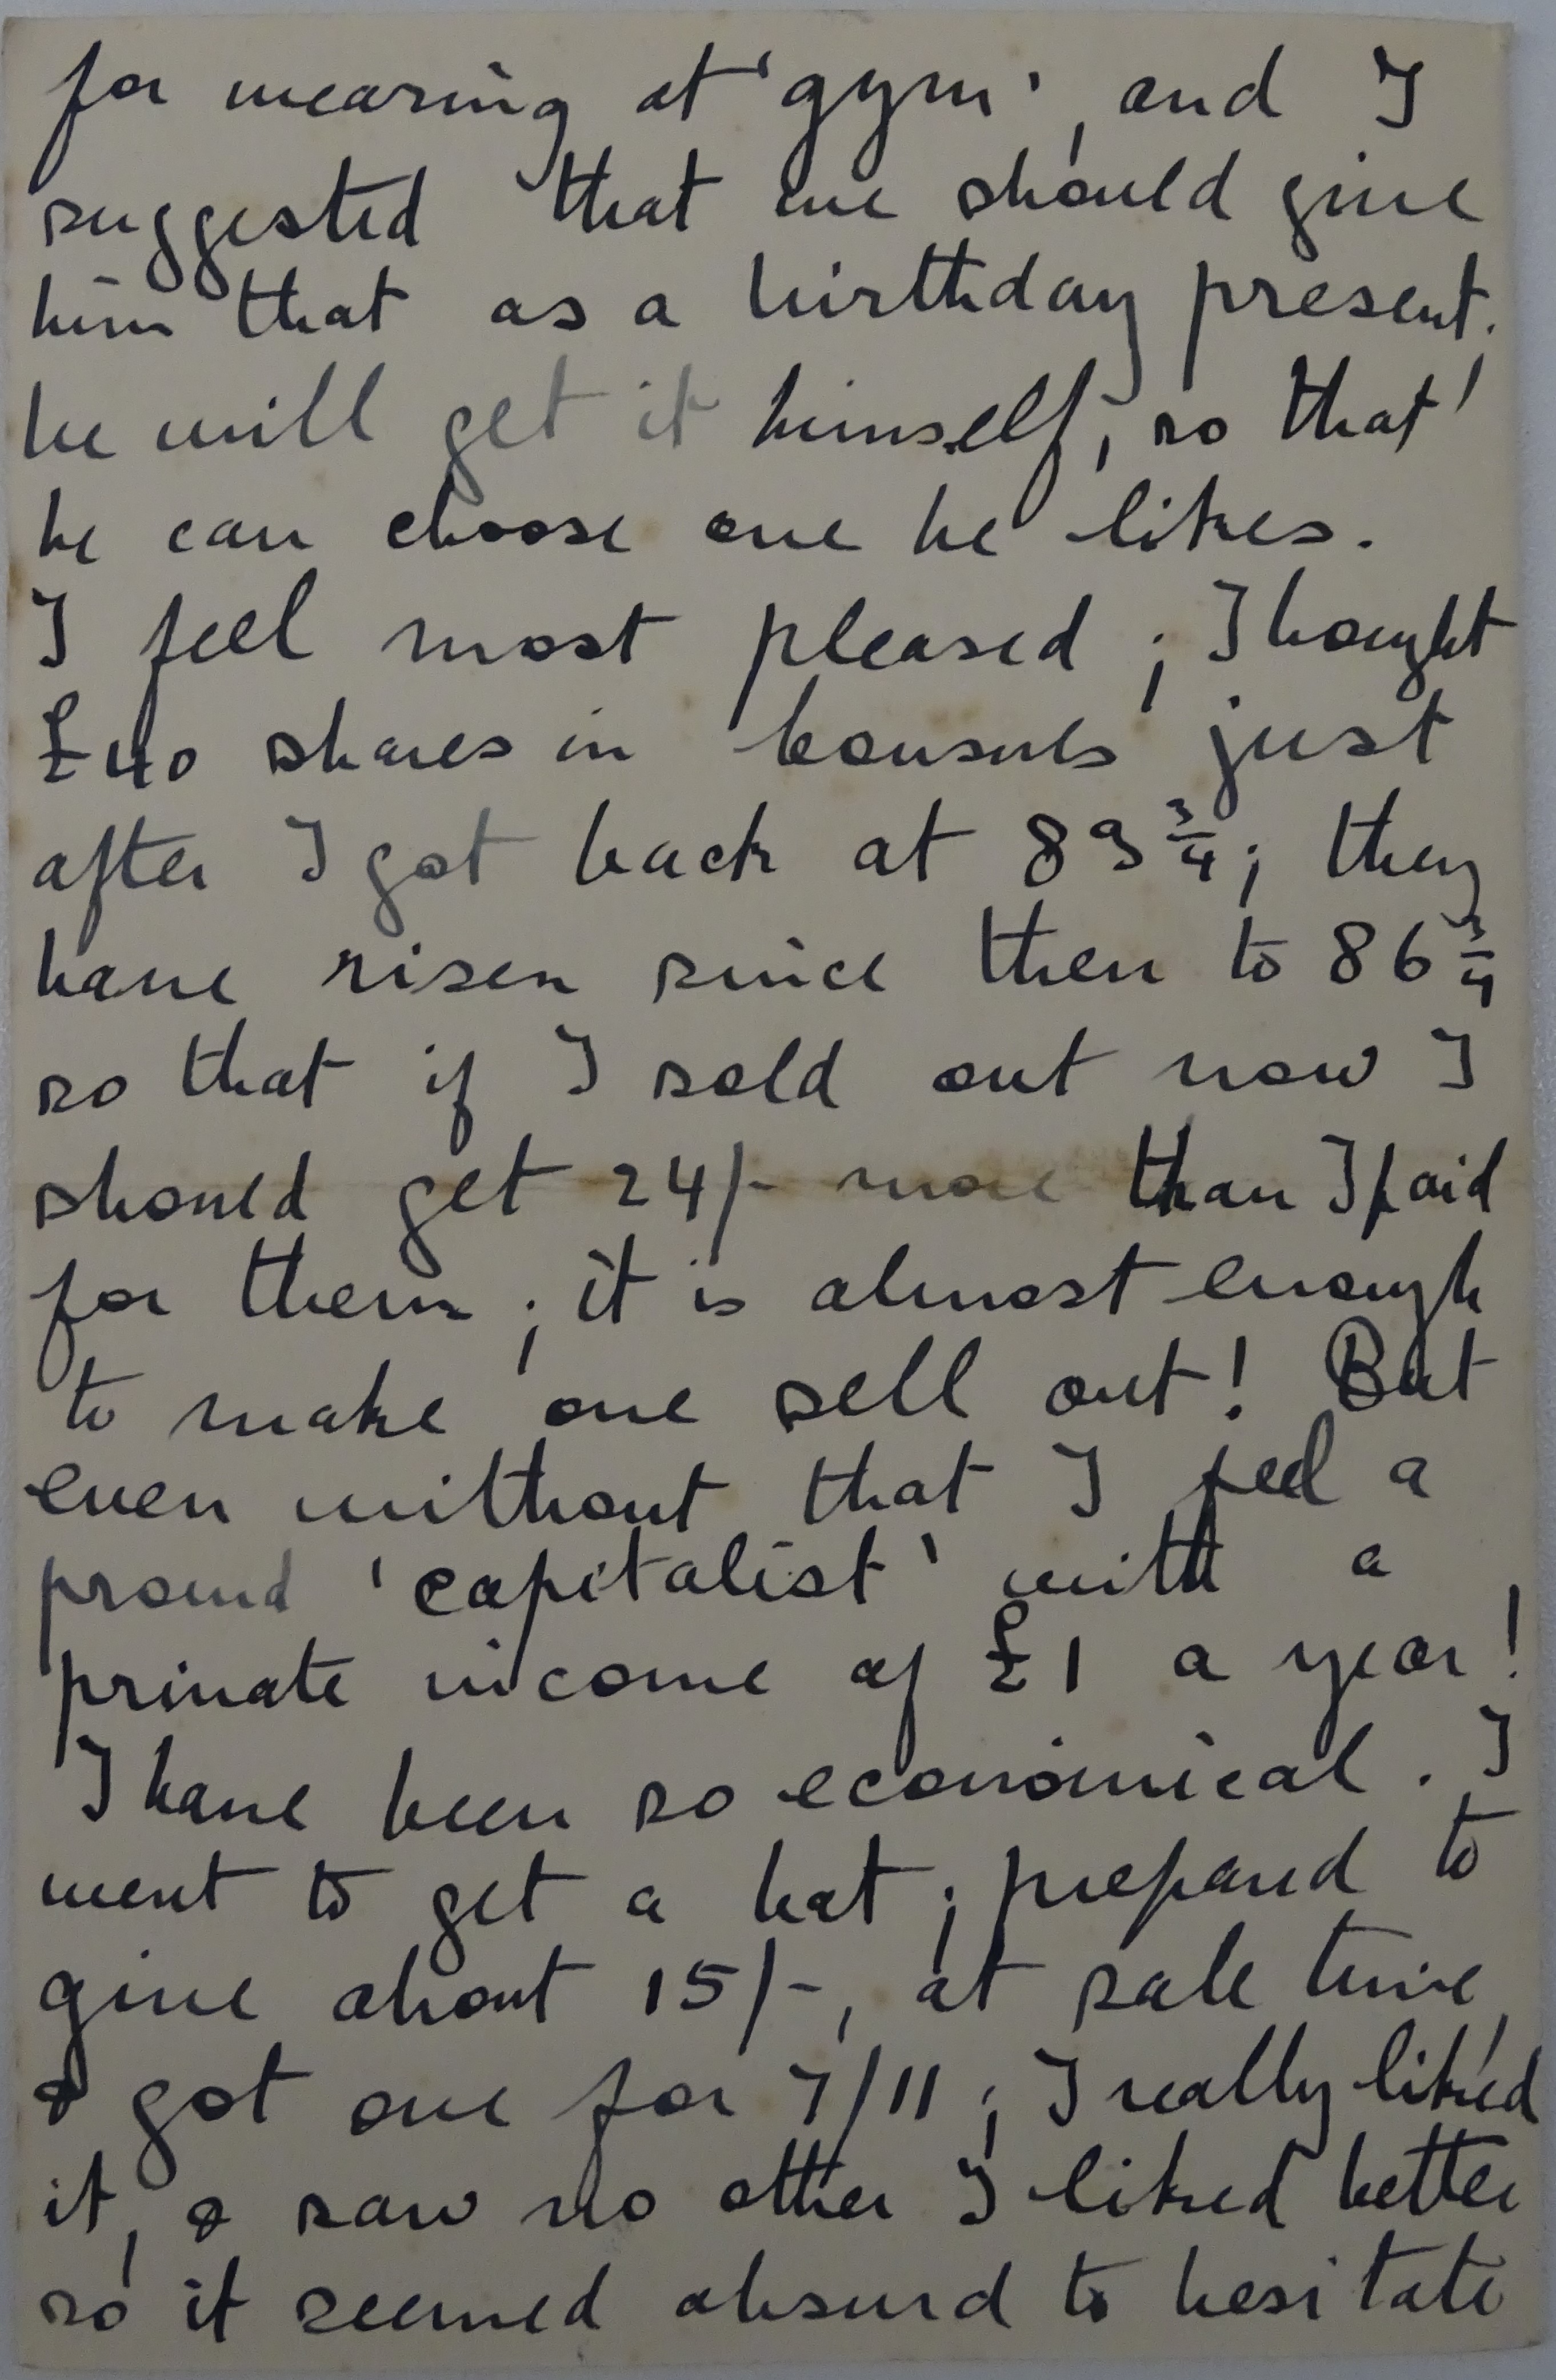 for wearing at 'gym', and I
suggested that we should give
him that as a birthday present.
he will get it himself, so that
he can choose one he likes.
I feel most pleased; I bought
£40 shares in Consuls just
after I got back at 83¾; they
have risen since then to 86¾
so that if I sold out now I
should get 24/- more than I paid
for them; it is almost enough
to make one sell out! But
even without that I feel a
proud 'capitalist' with a
private income of £1 a year!
I have been so economical. I
went to get a hat; prepared to
give about 15/-, at sale time,
& got one for 7/11; I really liked
it, & saw no other I liked better
so it seemed absurd to hesitate